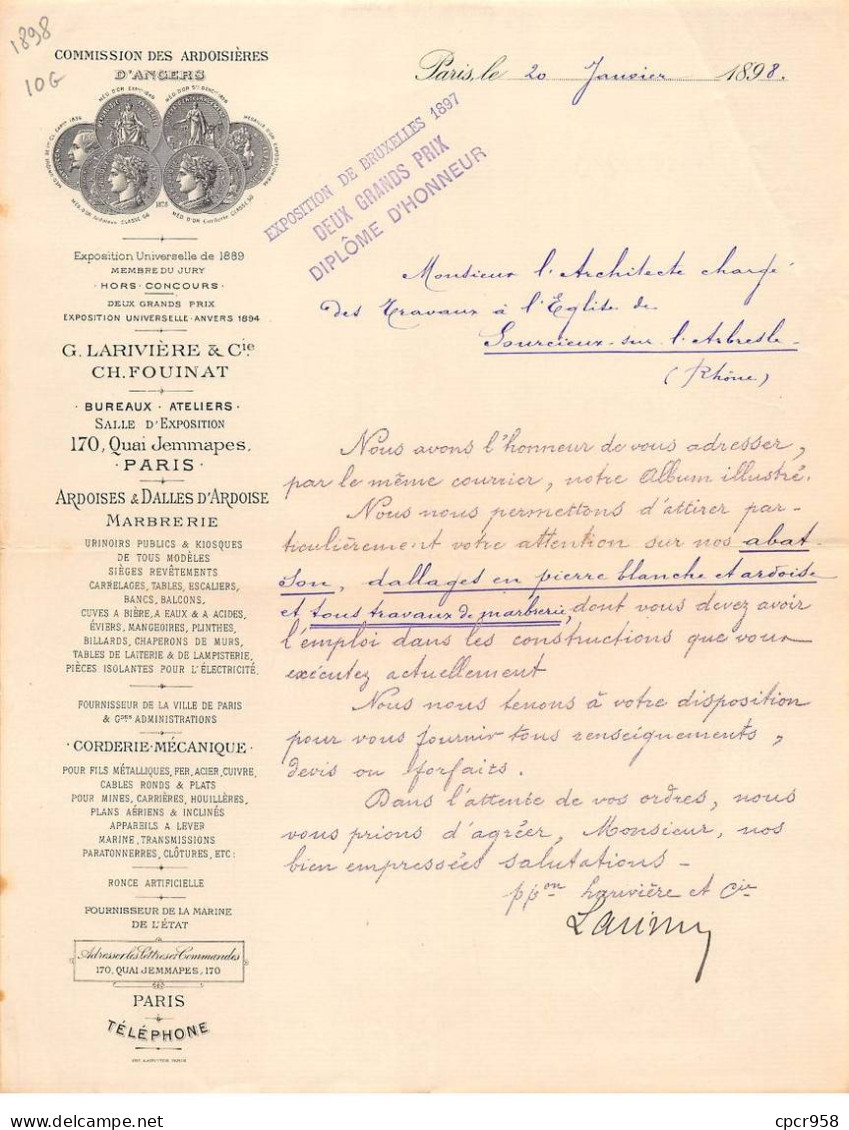 1898
10G
COMMISSION DES ARDOISIÈRES
D'ANGERS
1878
Exposition Universelle de 1889
MEMBRE DU JURY
· HORS · CONCOURS ·
DEUX GRANDS PRIX
EXPOSITION UNIVERSELLE · ANVERS 1894
G. LARIVIÈRE & Cie
CH. FOUINAT
· BUREAUX · ATELIERS ·
SALLE D'EXPOSITION
170, Quai Jemmapes,
· PARIS ·
ARDOISES & DALLES D'ARDOISE
MARBRERIE
URINOIRS PUBLICS & KIOSQUES
DE TOUS MODÈLES
SIÈGES REVÊTEMENTS
CARRELAGES, TABLES, ESCALIERS,
BANCS, BALCONS,
CUVES A BIÈRE, A EAUX & A ACIDES,
ÉVIERS, MANGEOIRES, PLINTHES,
BILLARDS, CHAPERONS DE MURS,
TABLES DE LAITERIE & DE LAMPISTERIE,
PIÈCES ISOLANTES POUR L'ÉLECTRICITÉ.
FOURNISSEUR DE LA VILLE DE PARIS
& Gdes ADMINISTRATIONS
· CORDERIE · MÉCANIQUE ·
POUR FILS MÉTALLIQUES, FER, ACIER, CUIVRE,
CABLES RONDS & PLATS
POUR MINES, CARRIÈRES, HOUILLÈRES,
PLANS AÉRIENS & INCLINÉS
APPAREILS A LEVER
MARINE, TRANSMISSIONS
PARATONNERRES, CLÔTURES, ETC:
RONCE ARTIFICIELLE
FOURNISSEUR DE LA MARINE
DE L'ÉTAT
Adresser les Lettres et Commandes
170, QUAI JEMMAPES, 170
PARIS
TÉLÉPHONE
Paris, le 20 Janvier 1898.
EXPOSITION DE BRUXELLES 1897
DEUX GRANDS PRIX
DIPLÔME D'HONNEUR
Monsieur l'Architecte chargé
des travaux à l'Eglise de
Sourcieux-sur-l'Arbresle-
(Rhône)
Nous avons l'honneur de vous adresser,
par le même courrier, notre Album illustré.
Nous nous permettons d'attirer par-
ticulièrement votre attention sur nos abat-
son, dallages en pierre blanche et ardoise
et tous travaux de marbrerie, dont vous devez avoir
l'emploi dans les constructions que vous
exécutez actuellement
Nous nous tenons à votre disposition
pour vous fournir tous renseignements,
devis ou forfaits.
Dans l'attente de vos ordres, nous
vous prions d'agréer, Monsieur, nos
bien empressées salutations -
ppon Larivière et Cie
delcampe.net
cpcr958